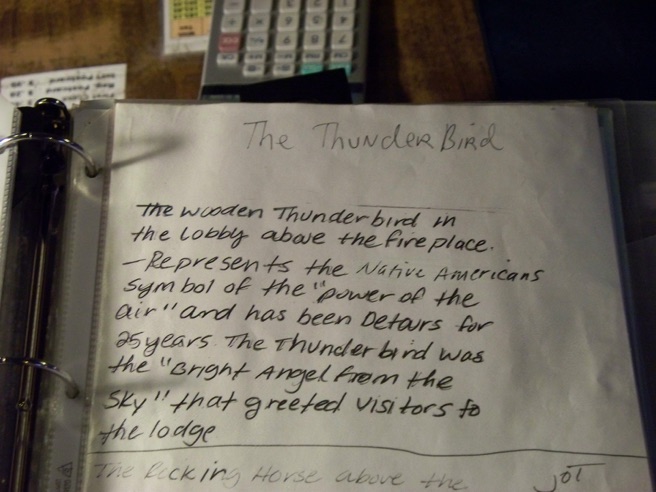 The Thunder Bird
The wooden Thunderbird in
the lobby above the fireplace.
—Represents the Native Americans
symbol of the "power of the
air" and has been Detours for
25 years. The Thunderbird was
the "Bright Angel from the
Sky" that greeted visitors to
the lodge
The Rocking Horse above the